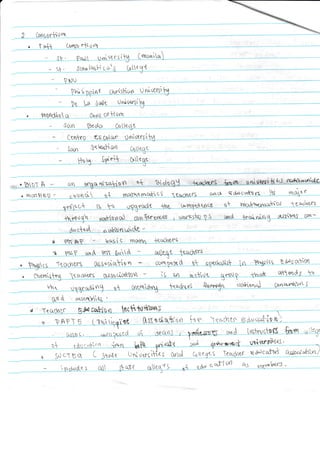 2 Consortium
• Taft Consortium
- St. Paul University (Manila)
- St. Scholastica's College
- PNU
- Philippine Christian University
- De La Salle University
• Mendiola Consortium
- San Beda College
- Centro Escolar University
- San Sebastian College
- Holy Spirit College
• BIOTA - an organization of Biology teachers from universities nationwide
• MATHED - council of mathematics Teachers and Educators. Its major
project is to upgrade the competence of mathematics teachers
through national conferences, workshops and training courses con-
ducted nationwide -
- basic math teachers
• MSP and MTs Guild - college teachers
• Physics Teachers association - composed of specialist in Physics Education
• Chemistry Teachers association - is an active group that attends to
the upgrading of chemistry teachers through national convention/
and assembly -
• Teacher Education Institutions
• PAFTE (Philippine Association for Teacher Education)
- composed of deans, professors and instructors from colleges
of education from both private and government universities.
• SUCTEA (State Universities and Colleges Teacher Educators association)
- includes all state colleges of education as members.